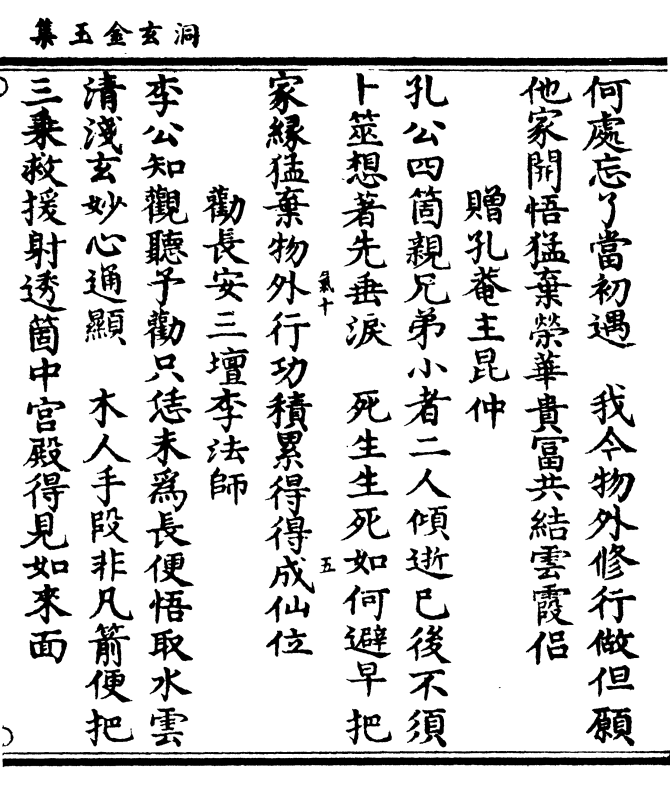 洞玄金玉集
何處忘了當初遇　我今物外修行做但願
他家開悟猛棄榮華貴富共結雲霞侶
贈孔菴主昆仲
孔公四箇親兄弟小者二人傾逝已後不須
卜筮想著先垂淚　死生生死如何避早把
家緣猛棄物外行功積累得得成仙位
氣十
五
勸長安三壇李法師
李公知觀聽予勸只恁未爲長便悟取水雲
清淺玄妙心通顯　木人手段非凡箭便把
三乘救援射透箇中宮殿得見如來面